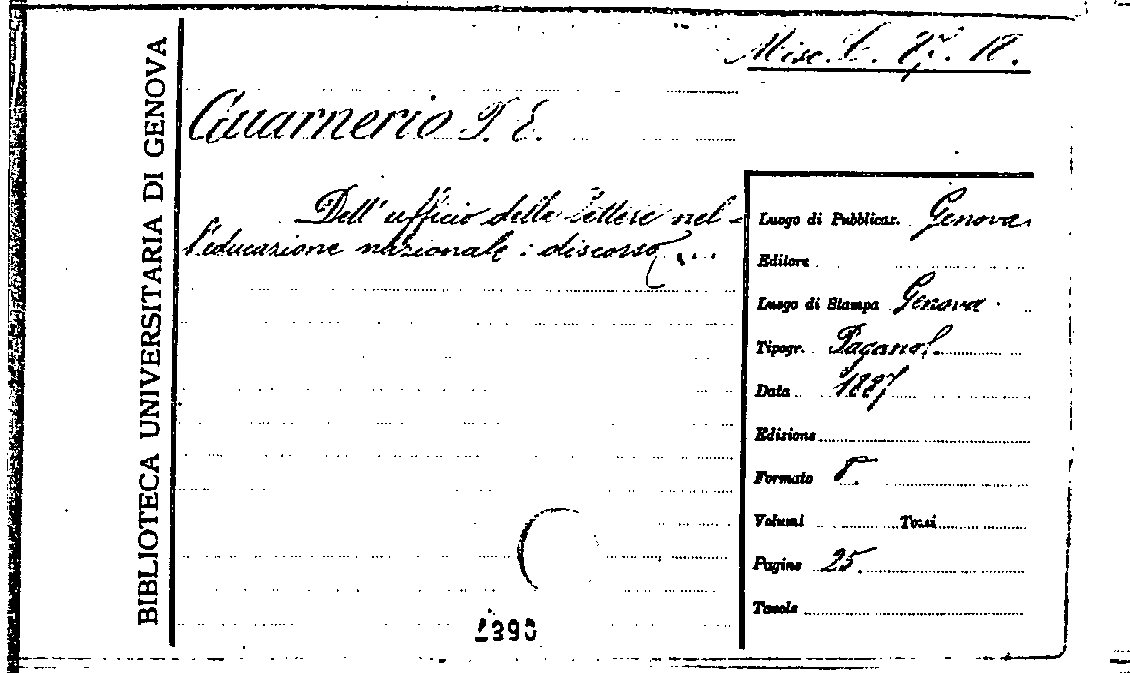 BIBLIOTECA UNIVERSITARIA DI GENOVA
Misc. L. 27. 12.
Guarnerio P. E.
Dell'ufficio delle lettere nel-
l'educazione nazionale: discorso ...
Luogo di Pubblicaz. Genova
Editore
Luogo di Stampa Genova
Tipogr. Pagano f.
Data 1887
Edizione
Formato 8.
Volumi Tomi
Pagine 25.
Tavole
1390